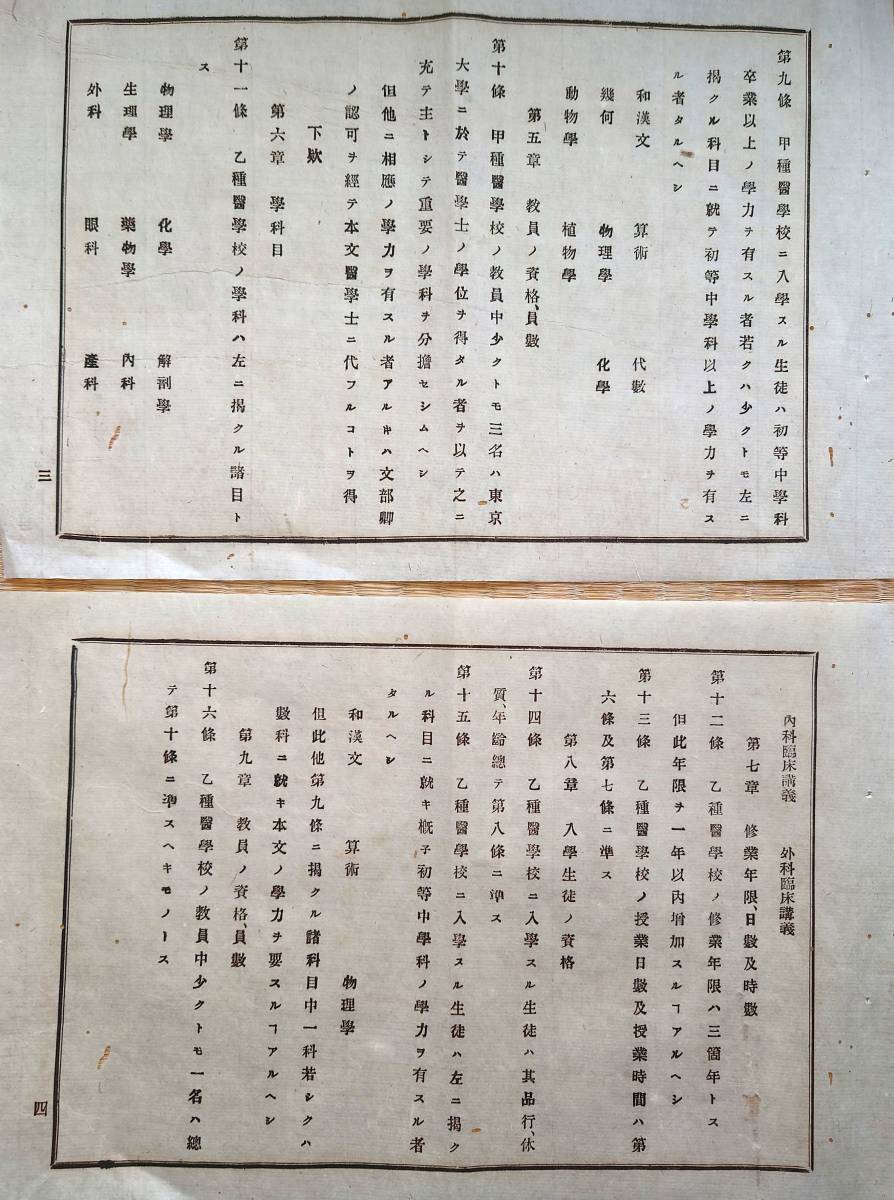 第九條 甲種醫學校ニ入學スル生徒ハ初等中學科
卒業以上ノ學力ヲ有スル者若クハ少クトモ左ニ
揭クル科目ニ就テ初等中學科以上ノ學力ヲ有ス
ル者タルヘシ
和漢文 算術 代數
幾何 物理學 化學
動物學 植物學
第五章 敎員ノ資格、員數
第十條 甲種醫學校ノ敎員中少クトモ三名ハ東京
大學ニ於テ醫學士ノ學位ヲ得タル者ヲ以テ之ニ
充テ主トシテ重要ノ學科ヲ分擔セシムヘシ
但他ニ相應ノ學力ヲ有スル者アルキハ文部卿
ノ認可ヲ經テ本文醫學士ニ代フルコトヲ得
下欵
第六章 學科目
第十一條 乙種醫學校ノ學科ハ左ニ揭クル諸目ト
ス
物理學 化學 解剖學
生理學 藥物學 內科
外科 眼科 產科
三
內科臨床講義 外科臨床講義
第七章 修業年限、日數及時數
第十二條 乙種醫學校ノ修業年限ハ三箇年トス
但此年限ヲ一年以內增加スルヿアルヘシ
第十三條 乙種醫學校ノ授業日數及授業時間ハ第
六條及第七條ニ準ス
第八章 入學生徒ノ資格
第十四條 乙種醫學校ニ入學スル生徒ハ其品行、体
質、年齡總テ第八條ニ準ス
第十五條 乙種醫學校ニ入學スル生徒ハ左ニ揭ク
ル科目ニ就キ槪子初等中學科ノ學力ヲ有スル者
タルヘシ
和漢文 算術 物理學
但此他第九條ニ揭クル諸科目中一科若シクハ
數科ニ就キ本文ノ學力ヲ要スルヿアルヘシ
第九章 敎員ノ資格、員數
第十六條 乙種醫學校ノ敎員中少クトモ一名ハ總
テ第十條ニ準スヘキモノトス
四